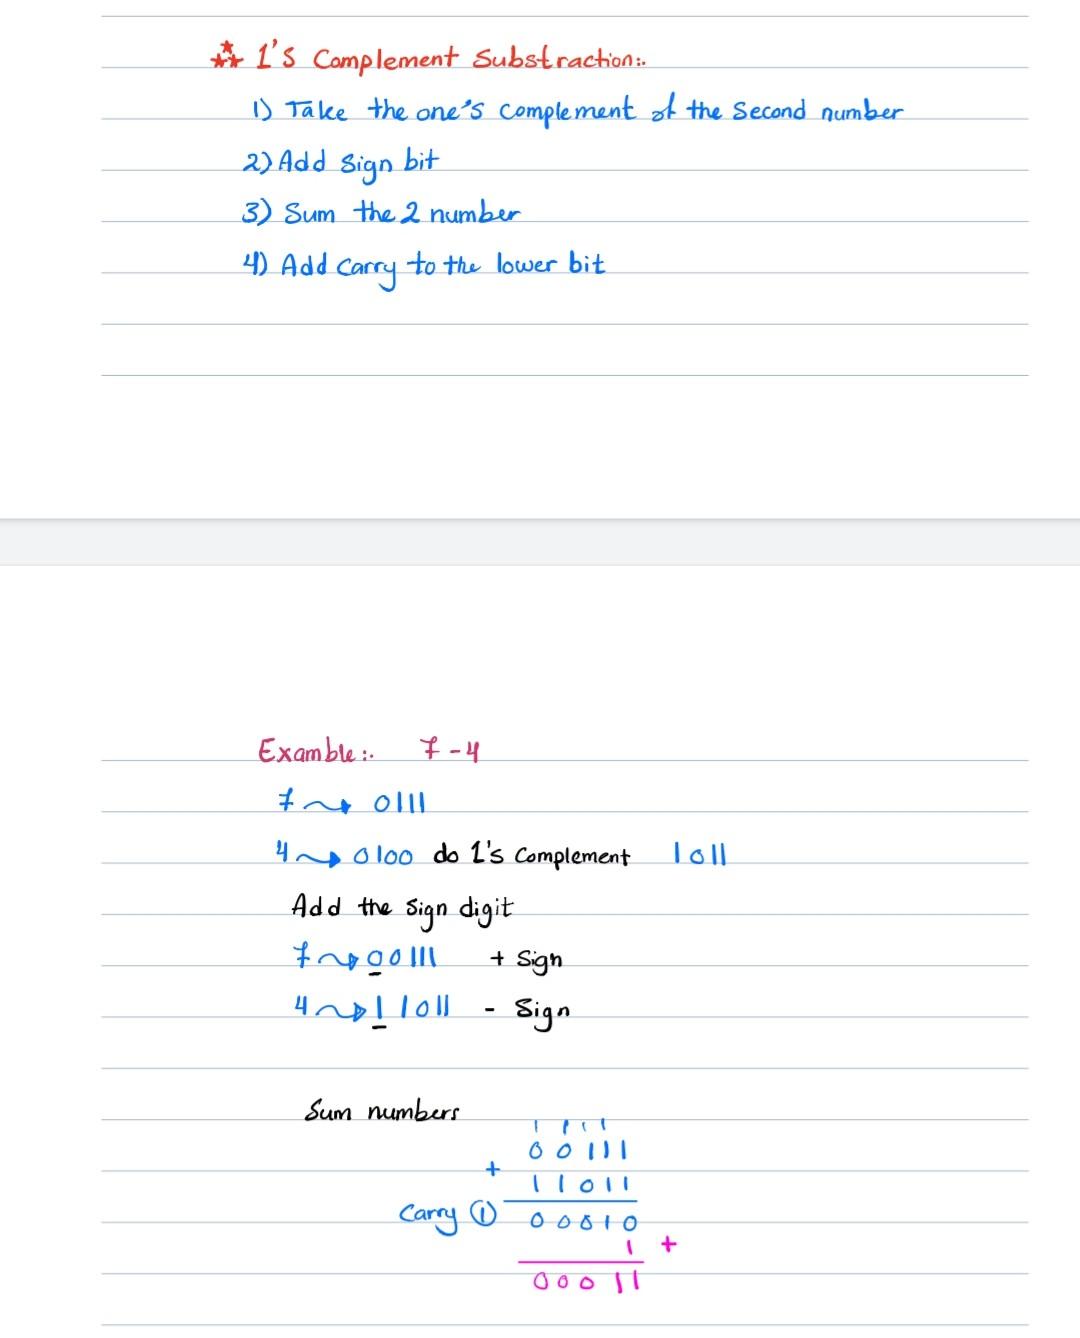 1's Complement Substraction:.
1) Take the one's complement of the Second number
2) Add Sign bit
3) Sum the 2 number
4) Add Carry to the lower bit
Examble:. 7-4
7 → 0111
4 → 0100 do 1's Complement 1011
Add the Sign digit
7 → 00111 + Sign
4 → 11011 - Sign
Sum numbers
1 1 1 1
0 0 1 1 1
+
1 1 0 1 1
Carry ① 0 0 0 1 0
1 +
0 0 0 1 1